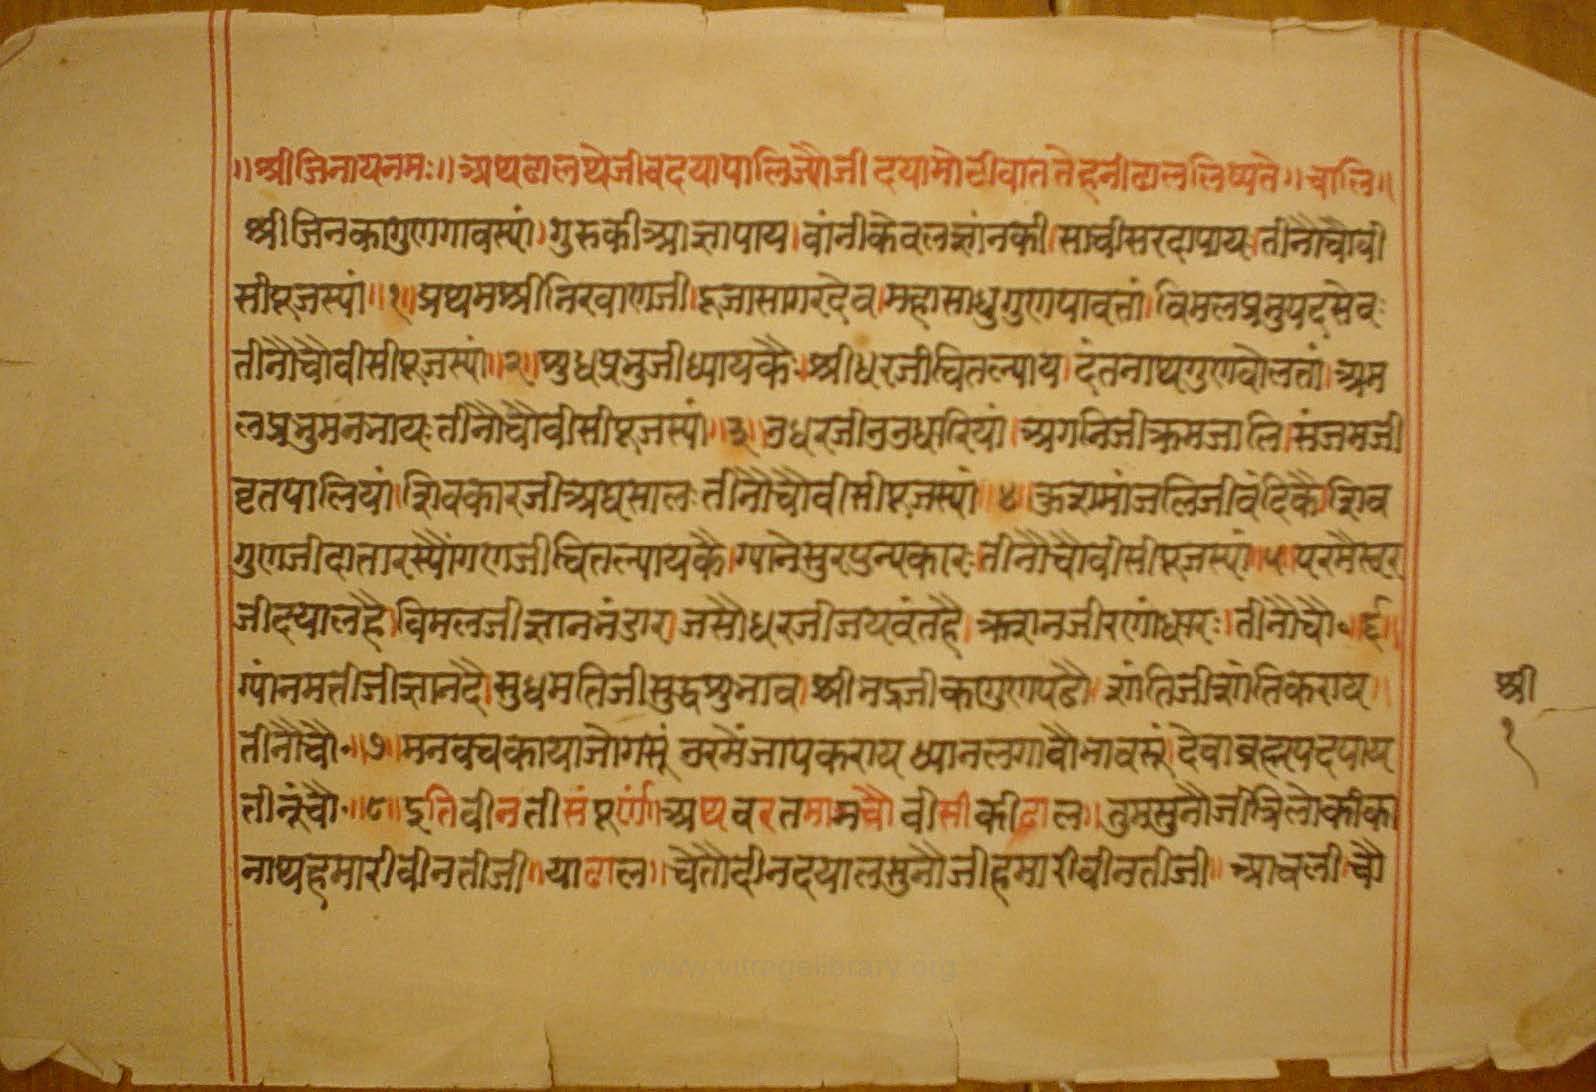 ॥श्रीजिनायनमः॥अथढालथेजीवदयापालिज्यौजी दयामोटीवाततेहनीढाललिष्यते॥चालि॥
श्रीजिनकागुणगावस्यां।गुरुकीआज्ञापाय।वांनीकेवलज्ञांनकी।साचीसरदापाय।तीनौचौवी
सीपूजस्यां॥१॥प्रथमश्रीनिरवाणजी।दूजासागरदेव।महासाधुगुणपावतां।विमलप्रभुपदसेव॰
तीनौचौवीसीपूजस्यां॥२॥सुधप्रभुजीध्यायकै॰श्रीधरजीचितल्याय।दंतनाथगुणवोलतां।अम
लप्रभुमनभाय॰तीनौचौवीसीपूजस्यां॥३॥उधरजीउउधारियां।अगनिजीक्रमजालि।संजमजी
वृतपालियां।शिवकारजीअघसाल॰तीनौचौवीसीपूजस्यां॥४॥कुशमांजलिजीवंदिकै।शिव
गुणजीदातारस्यौंगणजीचितल्यायकै।ग्यानेसुरपुन्यकार॰तीनौचौवीसीपूजस्यां॥५॥परमैस्वर
जीदयालहै।विमलजीज्ञानभंडार।जसौधरजीजयवंतहै।क्रशनजीरणांधार॰।तीनौचौ॰॥६॥
ग्यांनमतीजीज्ञानदै।सुधमतिजीसुद्धसुभाव।श्रीभद्रजीकागुणपढौ।शांतिजीशांतिकराय॥
तीनौचौ॰॥७॥मनवचकायाजोगसूं उरमैंजापकराय ध्यानलगावौभावसूं।देवाब्रह्मपदपाय
तीनूंचौ॰॥८॥इतिवीनतीसंपूर्ण॥अथवरतमांनचौवीसीकीढाल॥तुमसुनौजीत्रिलोकीका
नाथहमारीवीनतीजी॥याढाल॥चेतौदीनदयालसुनौजीहमारीवीनतीजी॥आवली।चौ
श्री
१
www.vitragelibrary.org